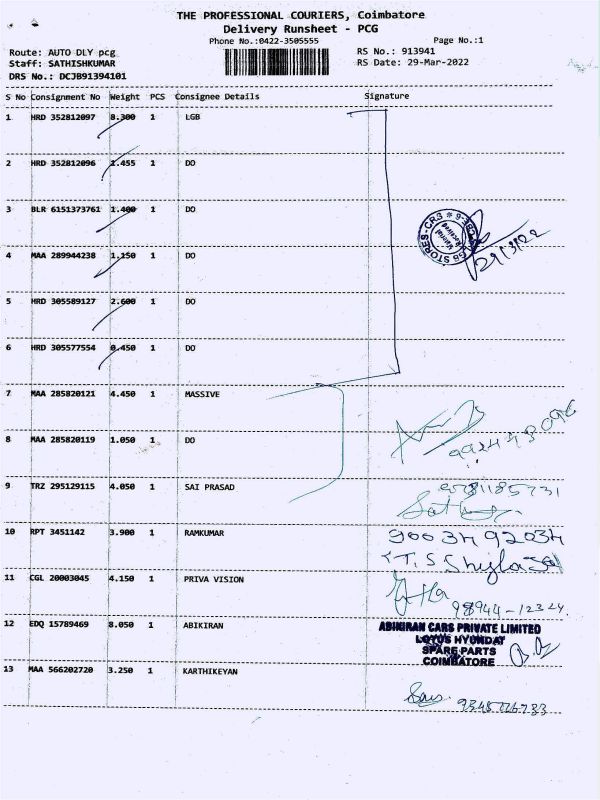 THE PROFESSIONAL COURIERS, Coimbatore
Delivery Runsheet - PCG
Phone No.:0422-3505555
Page No.:1
Route: AUTO DLY pcg
RS No.: 913941
Staff: SATHISHKUMAR
RS Date: 29-Mar-2022
DRS No.: DCJB91394101
S No Consignment No Weight PCS Consignee Details Signature
1 HRD 352812097 8.300 1 LGB
2 HRD 352812096 1.455 1 DO
3 BLR 6151373761 1.400 1 DO
4 MAA 289944238 1.150 1 DO
5 HRD 305589127 2.600 1 DO
6 HRD 305577554 0.450 1 DO
7 MAA 285820121 4.450 1 MASSIVE
8 MAA 285820119 1.050 1 DO
9 TRZ 295129115 4.050 1 SAI PRASAD
10 RPT 3451142 3.900 1 RAMKUMAR
9003492034
11 CGL 20003045 4.150 1 PRIVA VISION
98944-12324
12 EDQ 15789469 8.050 1 ABIKIRAN
ABIKIRAN CARS PRIVATE LIMITED
LOTUS HYUNDAI
SPARE PARTS
COIMBATORE
13 MAA 566202720 3.250 1 KARTHIKEYAN